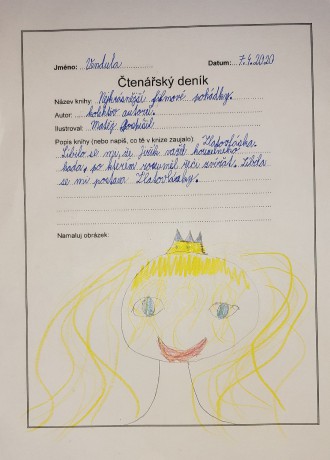 Jméno: Vendula Datum: 7.4.2020
Čtenářský deník
Název knihy: Nejkrásnější filmové pohádky.
Autor: kolektiv autorů.
Ilustroval: Matěj Pospíšil
Popis knihy (nebo napiš, co tě v knize zaujalo) Zlatovláska.
Líbilo se mi, že Jiřík našel kouzelného
hada, po kterém rozuměl řeči zvířat. Líbila
se mi postava Zlatovlásky.
Namaluj obrázek: